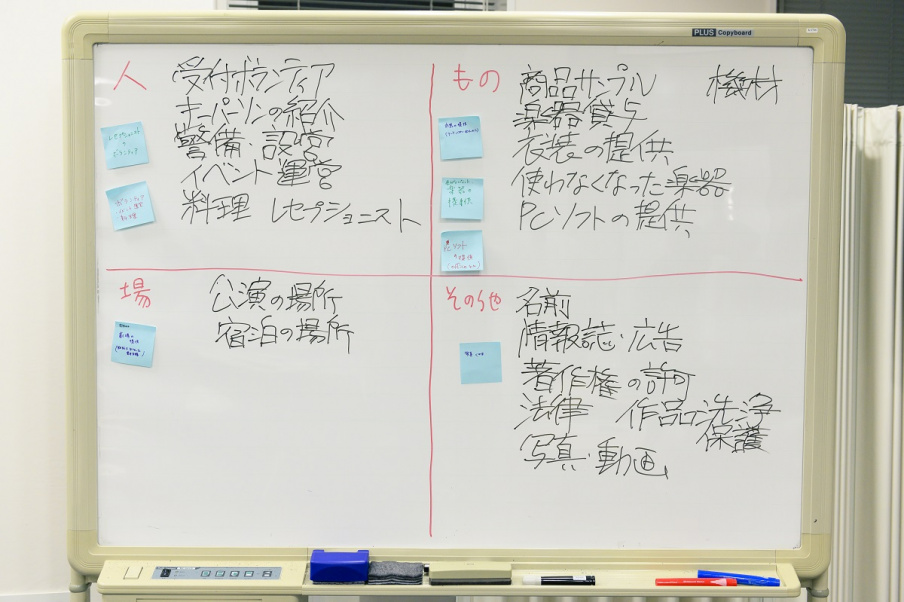 PLUS Copyboard
人
受付ボランティア
キーパーソンの紹介
警備・設営
イベント運営
料理 レセプショニスト
もの
商品サンプル 機材
楽器貸与
衣装の提供
使わなくなった楽器
PCソフトの提供
場
公演の場所
宿泊の場所
その他
名前
情報誌・広告
著作権の許可
法律 作品洗浄
保護
写真・動画